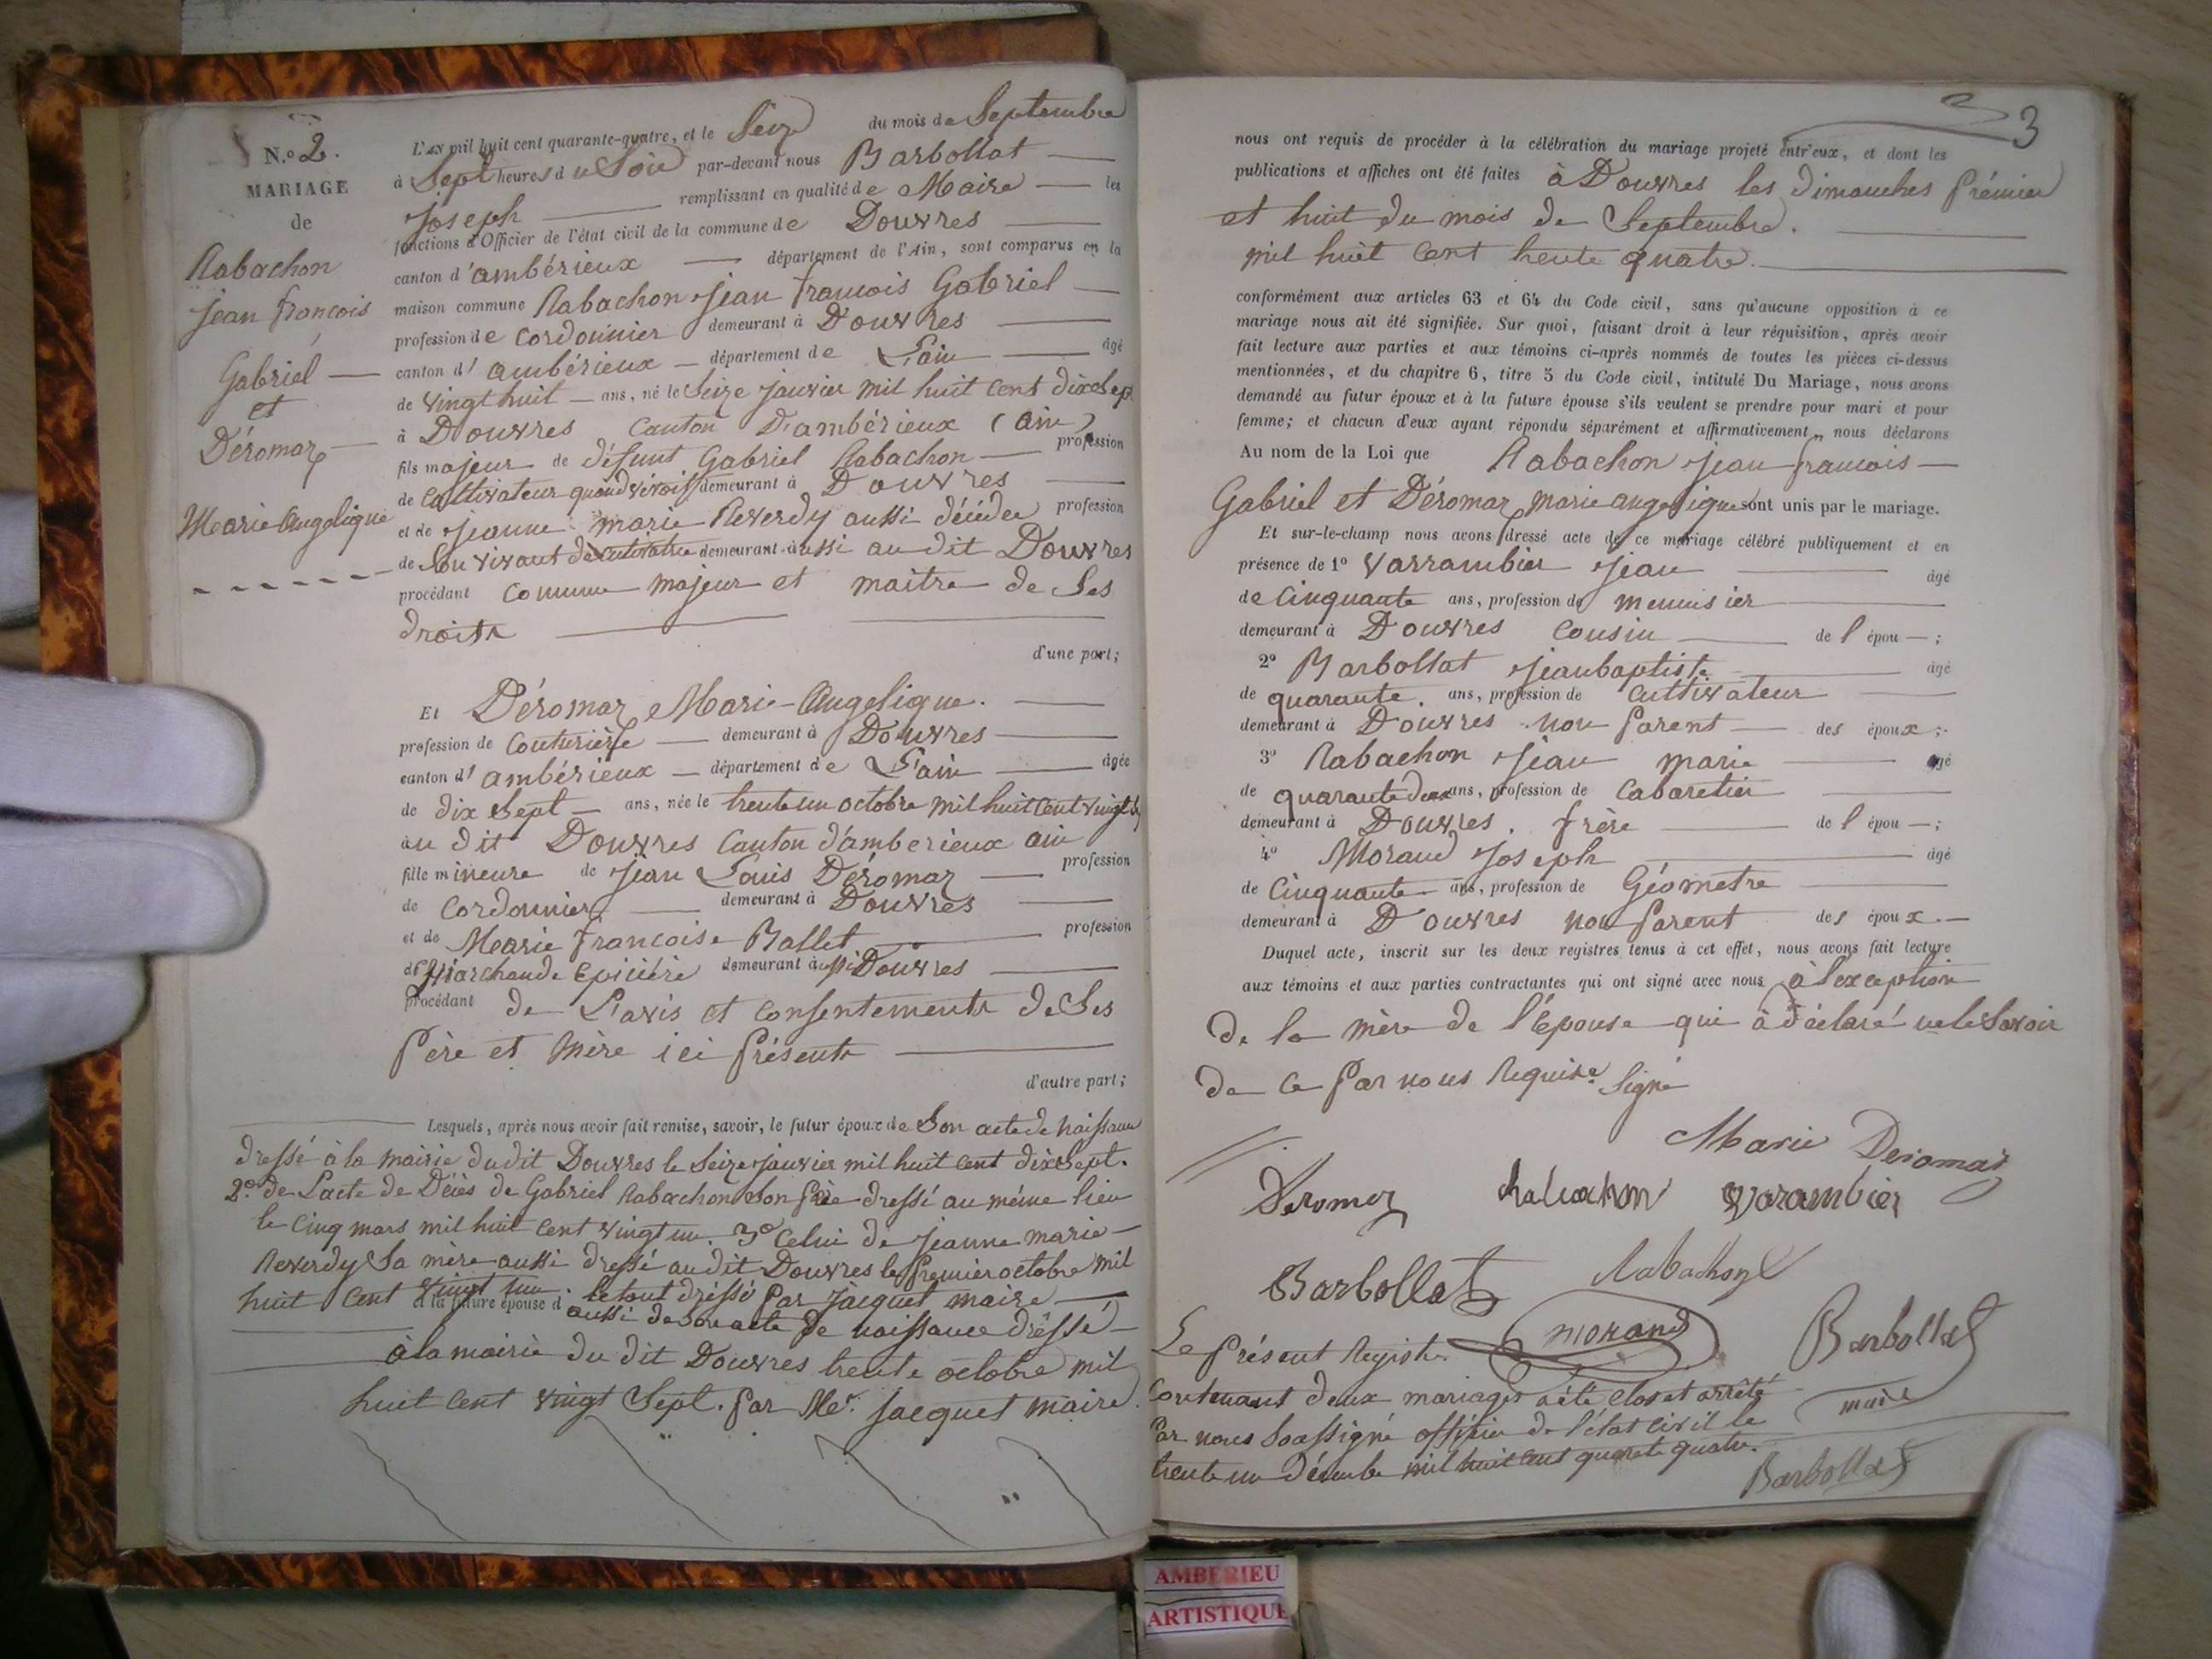 N.o 2.
MARIAGE
de
Rabachon
jean françois
Gabriel —
et
Déromaz —
Marie Angelique
L'an mil huit cent quarante-quatre, et le Seize du mois de Septembre
à Sept heures du Soir par-devant nous Barbollat —
Joseph — remplissant en qualité de Maire — les
fonctions d'Officier de l'état civil de la commune de Douvres —
canton d'ambérieux — département de l'Ain, sont comparus en la
maison commune Rabachon jean françois Gabriel —
profession de cordonnier demeurant à Douvres —
canton d'ambérieux — département de L'ain — âgé
de vingt huit — ans, né le Seize janvier mil huit cent dix Sept
à Douvres Canton D'ambérieux (ain)
fils majeur de défunt Gabriel Rabachon — profession
de Cultivateur quand vivoit demeurant à Douvres —
et de jeanne marie Reverdy aussi décédée profession
de Son vivant de cultivatrice demeurant aussi au dit Douvres
procédant comme majeur et maitre de Ses
droits —
d'une part;
Et Déromaz Marie-Angelique. —
profession de Couturière — demeurant à Douvres —
canton d'ambérieux — département de L'ain — âgée
de dix Sept — ans, née le trente un octobre mil huit cent vingt
au dit Douvres Canton d'amberieux ain
fille mineure de jean Louis Déromaz — profession
de cordonnier — demeurant à Douvres —
et de Marie françoise Ballet — profession
de Marchande Epicière demeurant aussi Douvres —
procédant de L'avis et consentements de Ses
Père et Mère ici présents —
d'autre part;
Lesquels, après nous avoir fait remise, savoir, le futur époux de Son acte de naissance
dressé à la mairie dudit Douvres le Seize janvier mil huit cent dix Sept.
2.o de L'acte de Décès de Gabriel Rabachon Son père dressé au même lieu
le cinq mars mil huit cent vingt un. 3o Celui de jeanne marie —
Reverdy Sa mère aussi dressé au dit Douvres le premier octobre mil
huit Cent vingt un. le tout dressé par jacquet maire —
et la future épouse d aussi de Son acte de naissance dressé —
à la mairie du dit Douvres trente octobre mil
huit cent vingt Sept. par Mr. jacquet maire.
3
nous ont requis de procéder à la célébration du mariage projeté entr'eux, et dont les
publications et affiches ont été faites à Douvres les dimanches prémier
et huit du mois de Septembre. —
mil huit cent trente quatre. —
conformément aux articles 63 et 64 du Code civil, sans qu'aucune opposition à ce
mariage nous ait été signifiée. Sur quoi, faisant droit à leur réquisition, après avoir
fait lecture aux parties et aux témoins ci-après nommés de toutes les pièces ci-dessus
mentionnées, et du chapitre 6, titre 5 du Code civil, intitulé Du Mariage, nous avons
demandé au futur époux et à la future épouse s'ils veulent se prendre pour mari et pour
femme; et chacun d'eux ayant répondu séparément et affirmativement, nous déclarons
Au nom de la Loi que Rabachon jean françois —
Gabriel et Déromaz marie angelique sont unis par le mariage.
Et sur-le-champ nous avons dressé acte de ce mariage célébré publiquement et en
présence de 1o Varrambier jean — âgé
de Cinquante ans, profession de menuisier —
demeurant à Douvres Cousin — de l'épou — ;
2o Barbollat jean baptiste — âgé
de quarante. ans, profession de Cultivateur —
demeurant à Douvres non parent — des époux ;
3o Rabachon jean marie — âgé
de quarante deux ans, profession de Cabaretier —
demeurant à Douvres. frère — de l'épou — ;
4o Morand Joseph — âgé
de Cinquante — ans, profession de Géometre —
demeurant à Douvres non parent des époux. —
Duquel acte, inscrit sur les deux registres tenus à cet effet, nous avons fait lecture
aux témoins et aux parties contractantes qui ont signé avec nous à l'exception
de la mère de l'épouse qui à déclaré ne le Savoir
de ce par nous Requise. Signé
Marie Deromaz
Deromaz Rabachon Varambier
Barbollat Rabachon
morand Barbollat
maire
Le présent Registre
Contenant deux mariages a été clos et arrêté
Par nous Soussigné officier de l'état civil le
trente un décembre mil huit cent quarante quatre.
Barbollat
AMBERIEU
ARTISTIQUE